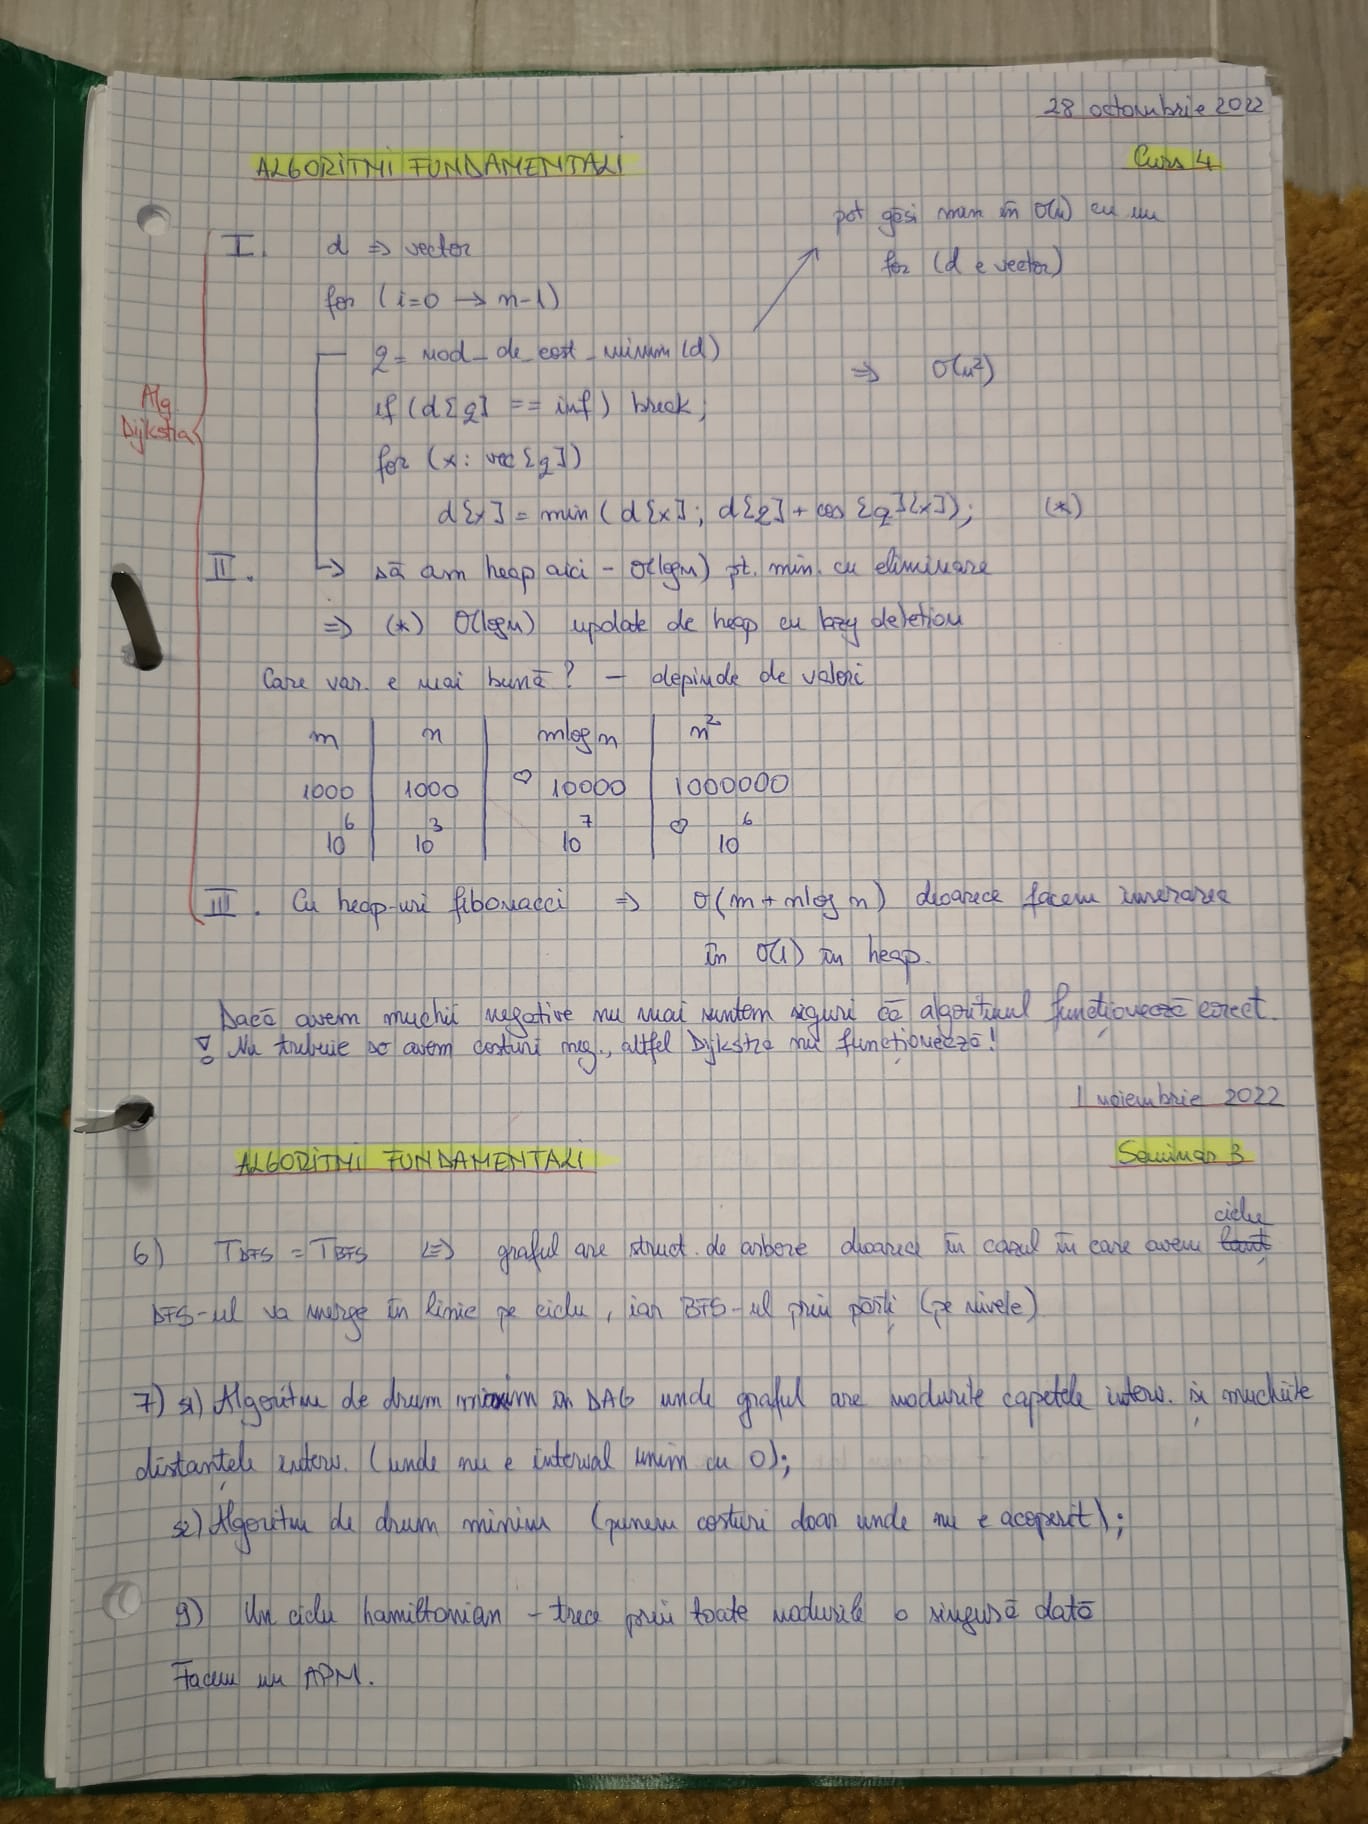 28 octombrie 2022
ALGORITMI FUNDAMENTALI Curs 4
pot găsi min în O(n) cu un
for (d e vector)
I. d => vector
for (i=0 -> n-1)
q = nod_de_cost_minim(d)
=> O(n²)
if (d[q] == inf) break;
Alg Dijkstra
for (x: vec[q])
d[x] = min(d[x]; d[q] + cos[q][x]); (*)
II. ↳ Dă am heap aici - O(logn) pt. min. cu eliminare
=> (*) O(logn) update de heap cu lazy deletion
Care var. e mai bună? - depinde de valori
m | n | mlogn | n²
1000 | 1000 | ♡ 10000 | 1000000
10⁶ | 10³ | 10⁷ | ♡ 10⁶
III. Cu heap-uri fibonacci => O(m+nlogn) deoarece facem inserarea
în O(1) în heap.
Dacă avem muchii negative nu mai suntem siguri că algoritmul funcționează corect.
! Nu trebuie să avem costuri neg., altfel Dijkstra nu funcționează!
1 noiembrie 2022
ALGORITMI FUNDAMENTALI Seminar 3
ciclu
6) TDFS = TBFS <=> graful are struct. de arbore deoarece în cazul în care avem
DFS-ul va merge în linie pe ciclu, iar BFS-ul prin părți (pe nivele)
7) s1) Algoritm de drum maxim în DAG unde graful are nodurile capetele interv. și muchiile
distanțele interv. (unde nu e interval unim cu 0);
s2) Algoritm de drum minim (punem costuri doar unde nu e acoperit);
9) Un ciclu hamiltonian - trece prin toate nodurile o singură dată
Facem un APM.